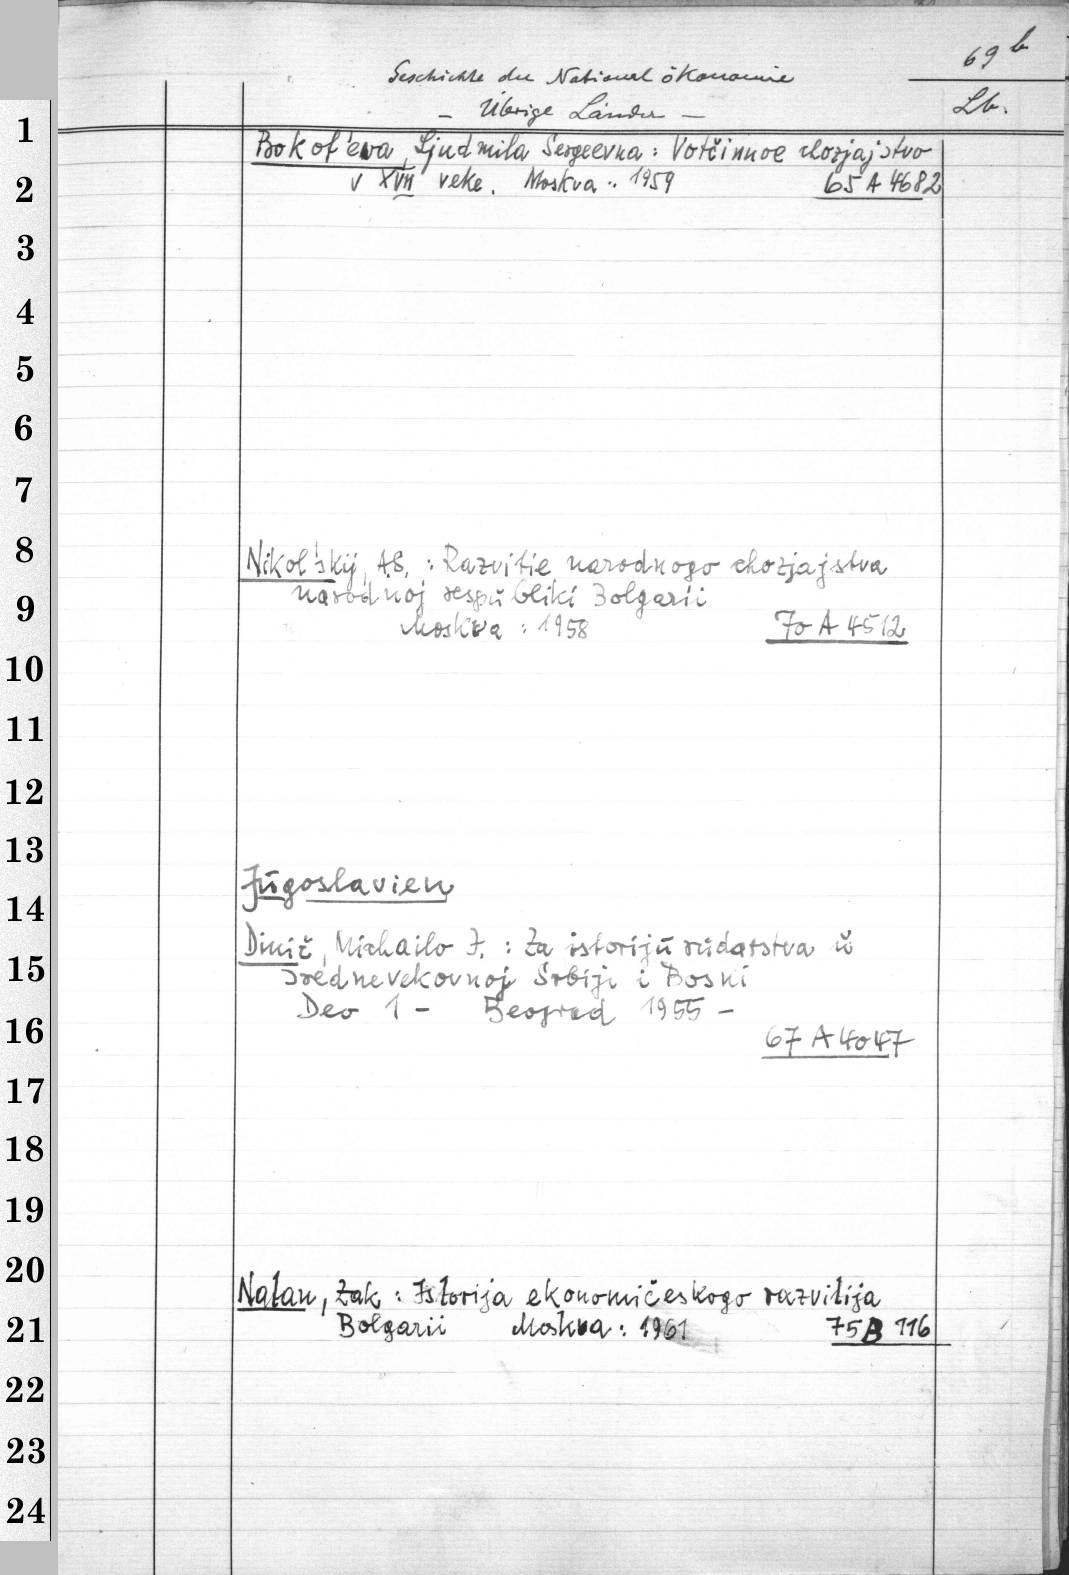 69 b
Geschichte der Nationalökonomie
- Übrige Länder -
Lb.
1
Bokof'eva, Ljudmila Sergeevna : Votčinnoe chozjajstvo
2
v XVII veke. Moskva : 1959 65 A 4682
3
4
5
6
7
8
Nikol'skij, A.S. : Razvitie narodnogo chozjajstva
narodnoj respubliki Bolgarii
9
Moskva : 1958 70 A 4512
10
11
12
13
Jugoslavien
14
Dinič, Michailo J. : Za istoriju rudarstva u
15
srednevekovnoj Srbiji i Bosni
Deo 1 - Beograd 1955 -
16
67 A 4047
17
18
19
20
Natan, Žak : Istorija ekonomičeskogo razvitija
21
Bolgarii Moskva : 1961 75 B 116
22
23
24